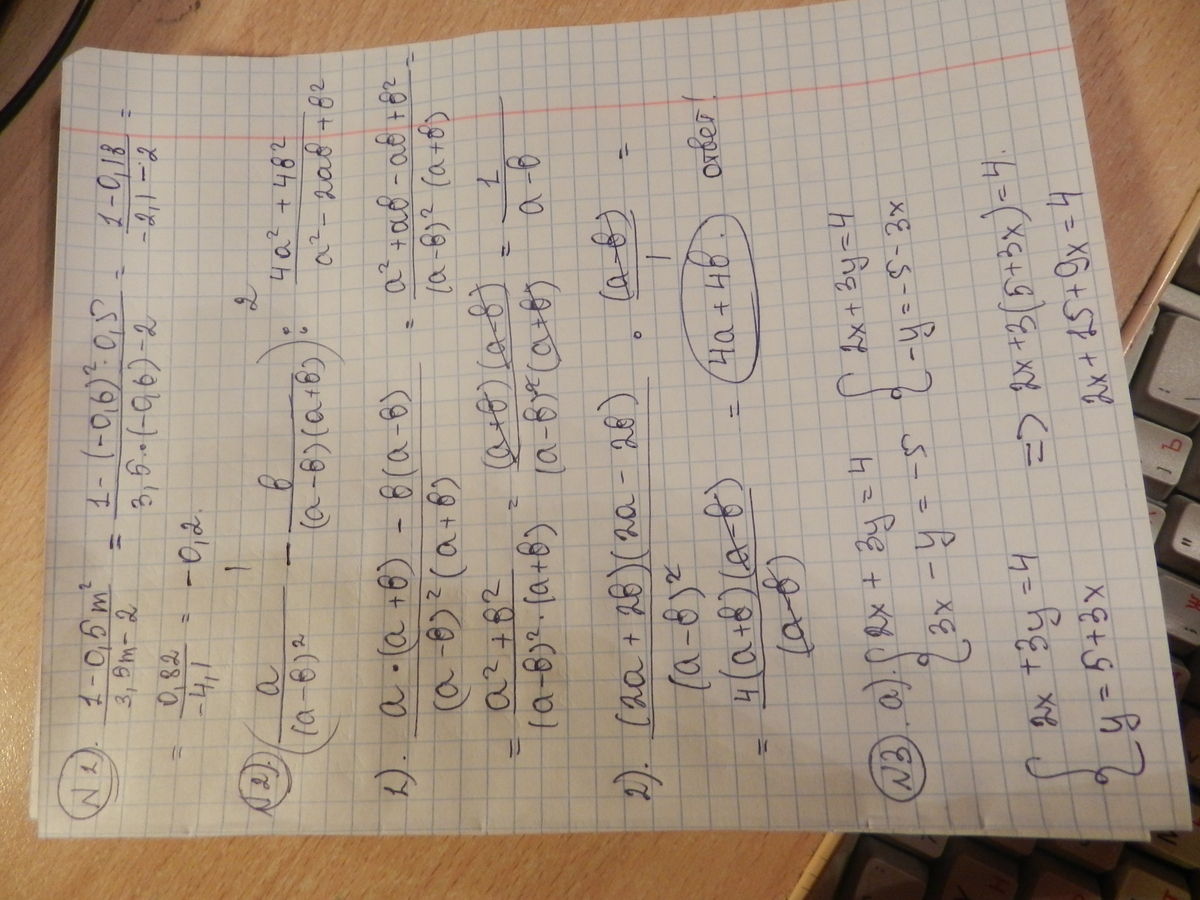 N1). (1-0,5m²)/(3,5m-2) = (1-(-0,6)²·0,5)/(3,5·(-0,6)-2) = (1-0,18)/(-2,1-2) =
= 0,82/-4,1 = -0,2.
N2). (a/(a-b)² - b/((a-b)(a+b))) : (4a²+4b²)/(a²-2ab+b²)
1 2
1). (a·(a+b) - b(a-b))/((a-b)²(a+b)) = (a²+ab-ab+b²)/((a-b)²(a+b)) =
= (a²+b²)/((a-b)²·(a+b)) = ((a+b)(a-b))/((a-b)²(a+b)) = 1/(a-b)
2). ((2a+2b)(2a-2b))/(a-b)² · (a-b)/1 =
= (4(a+b)(a-b))/(a-b) = 4a+4b. ответ!
N3. а). { 2x+3y=4 { 2x+3y=4
3x-y=-5 -y=-5-3x
{ 2x+3y=4 => 2x+3(5+3x)=4.
y=5+3x 2x+15+9x=4